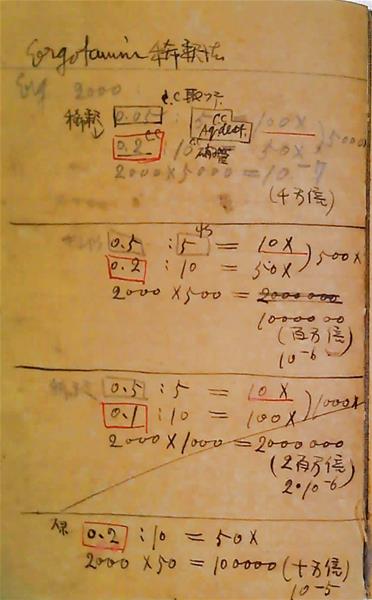 Ergotamin 稀釈法
Erg 2000 :
C.C取ッテ
稀釈 0.05 : 5 cc Aq.dest. = 100X ) 5000X
0.2 cc : 10 = 50X
2000 X 5000 = 10-7
(千万倍)
0.5 : 5 = 10X ) 500X
0.2 : 10 = 50X
2000 X 500 = 2000 000
10000 00
(百万倍)
10-6
0.5 : 5 = 10X ) 1000X
0.1 : 10 = 100X
2000 X 1000 = 2000 000
(2百万倍)
2・10-6
0.2 : 10 = 50X
2000 X 50 = 100000 (十万倍)
10-5